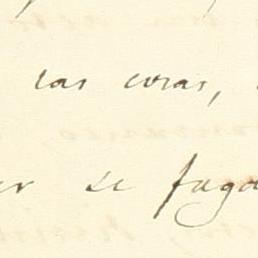 las coras,
er se fuga